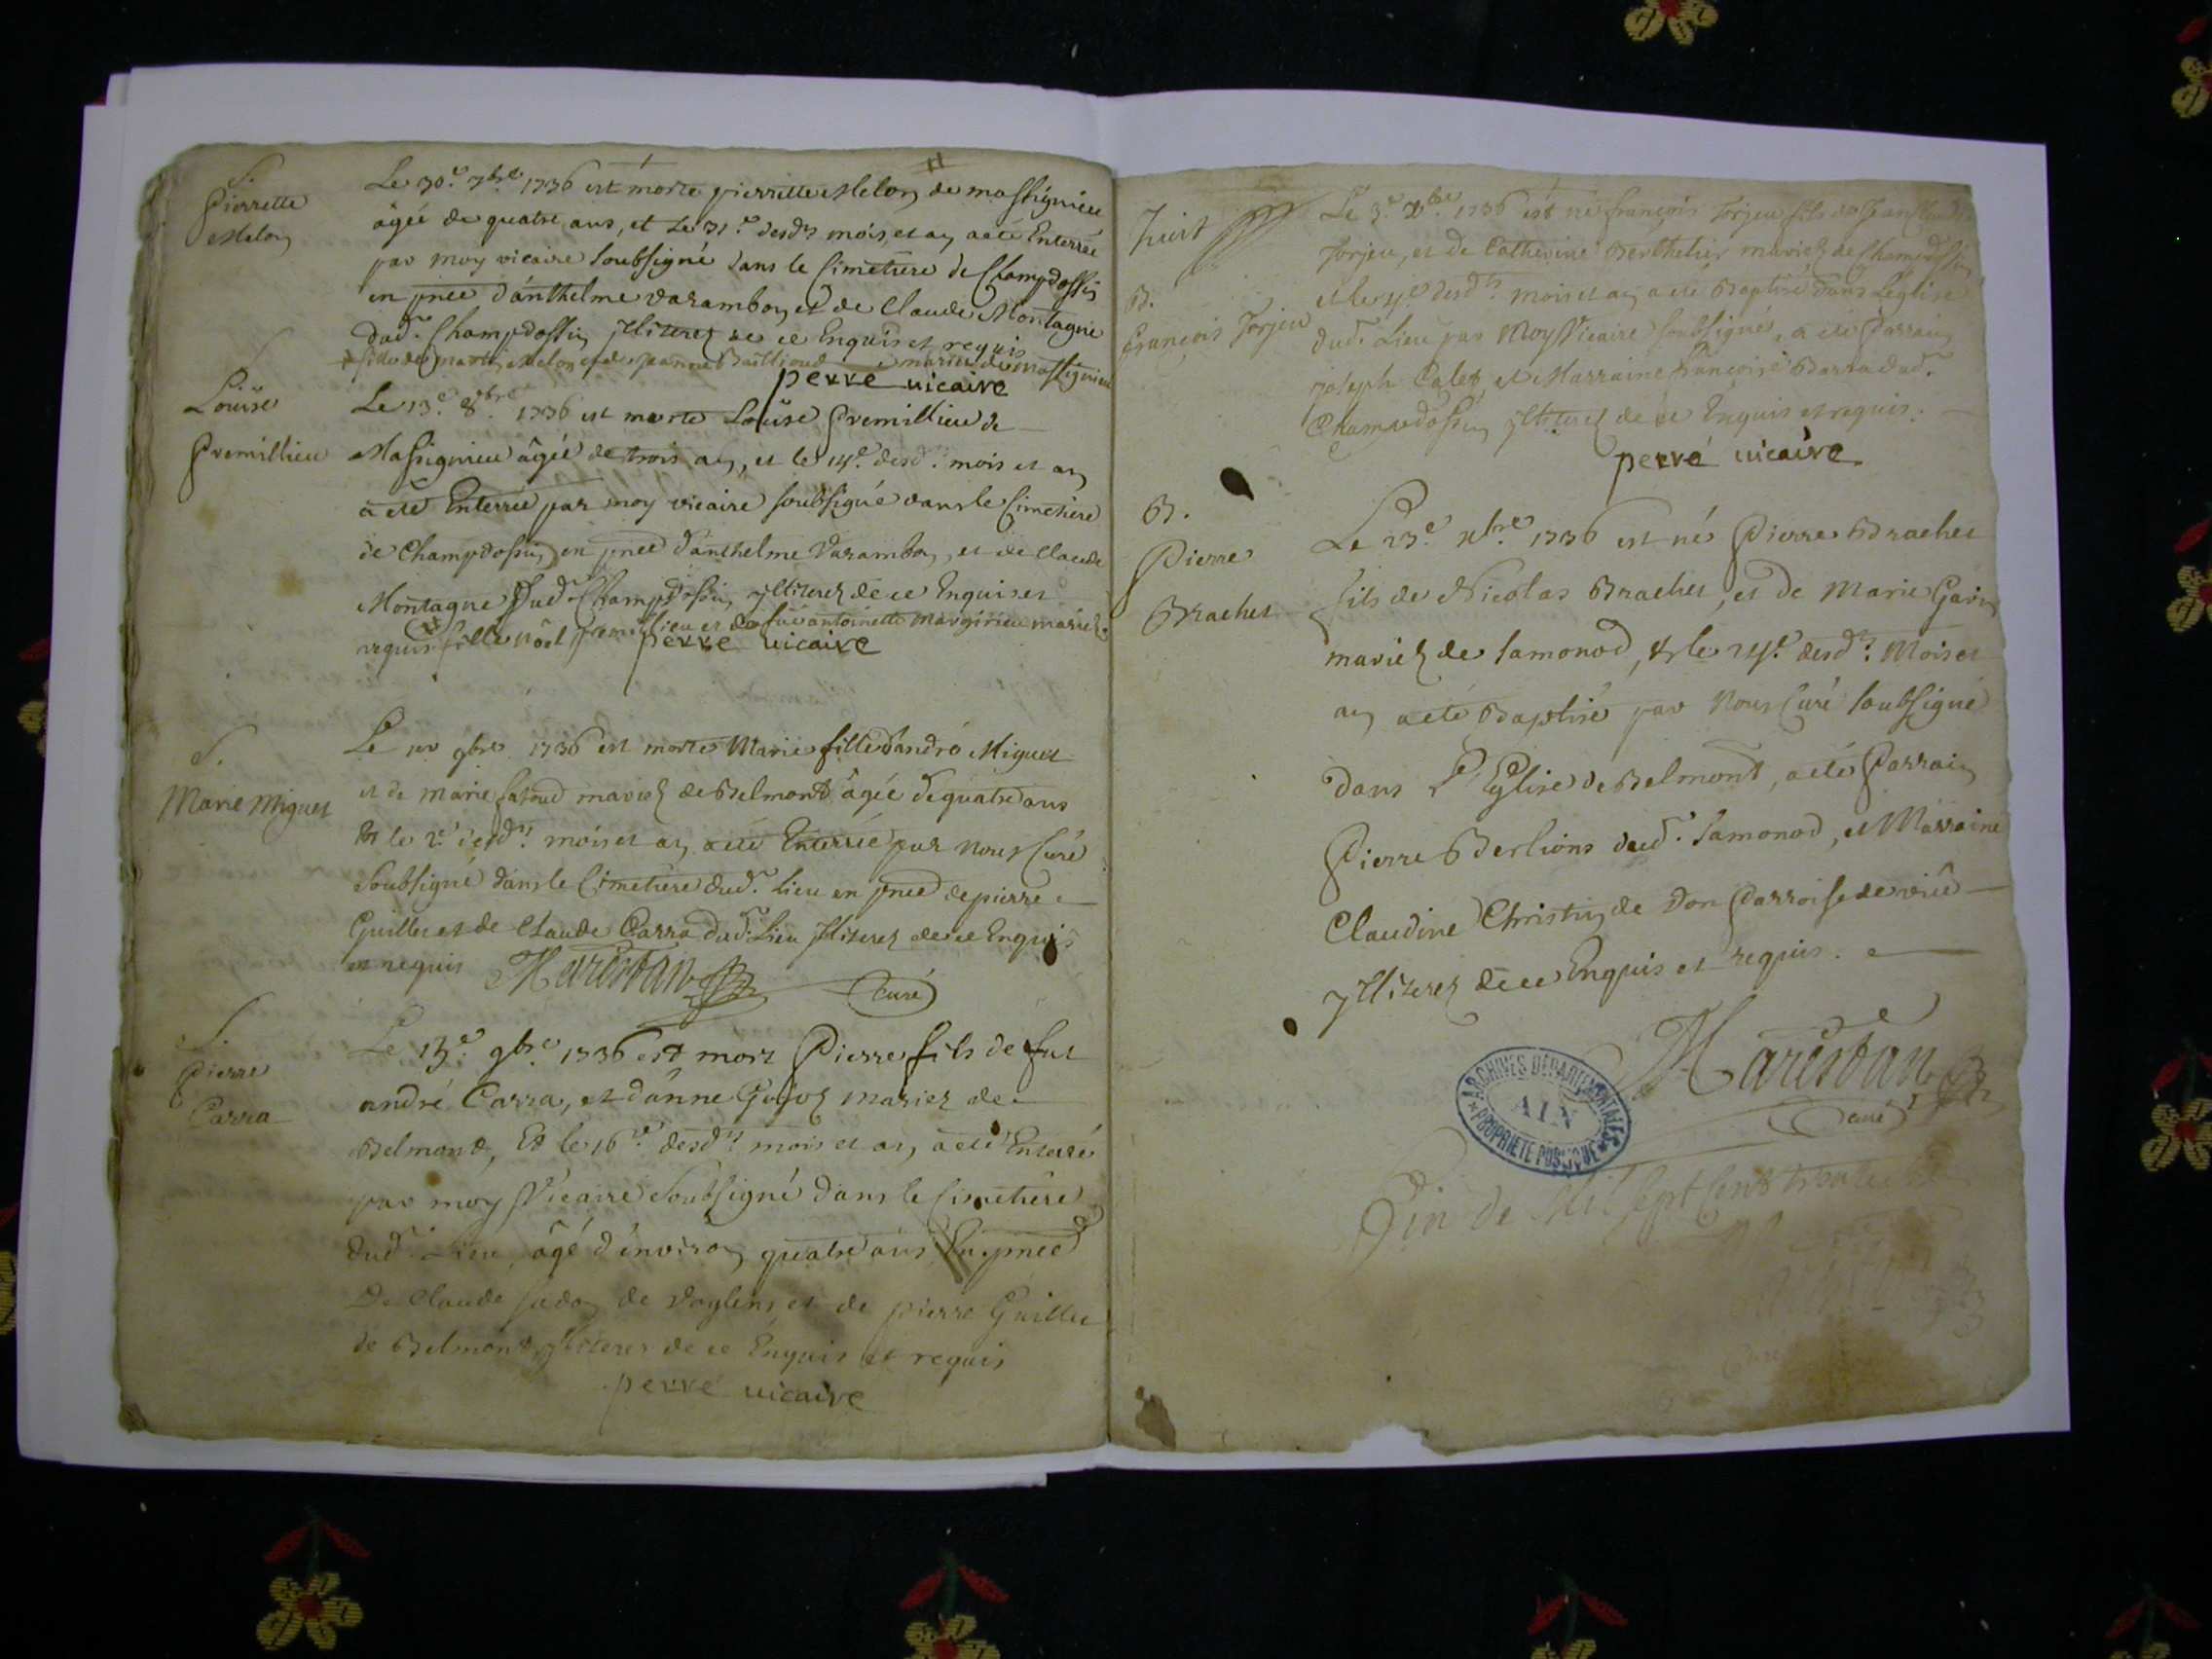 S.
Pierrette
Melon
Le 30.e 7bre 1736 est morte pierrette Melon de massignieu
âgée de quatre ans, et Le 31.e desd.ts mois et an a été Enterrée
par moy vicaire soubsigné dans le Cimetiere de Champdossin
en pnce d'anthelme varambon et de Claude Montagne
dud.t Champdossin jlliterez de ce Enquis et requis
fille de martin Melon et de jeanne Baillioud mariez de massignieu
perre uicaire
Louise
Premillieu
Le 13.e 8bre 1736 est morte Louïse Premillieu de
Massignieu âgée de trois an, et le 14.e desd. mois et an
a été Enterrée par moy vicaire soubsigné dans le Cimetiere
de Champdossin en pnce d'anthelme Varambon, et de Claude
Montagne dud. Champdossin jlliterez de ce Enquis et
requis fille Noel premillieu et de antoinette mariez
perre uicaire
S.
Marie Miguet
Le 1er 9bre 1736 est morte Marie fille d'andré Miguet
et de marie mariez de Belmont âgée de quatre ans
et le 2.e desd.ts mois et an a été Enterrée par nous Curé
Soubsigné dans le Cimetiere dud.t Lieu en pnce de pierre
Guillet et de Claude Carra dud. Lieu jlliterez de ce Enquis
et requis Marestan Curé
S.
Pierre
Carra
Le 15.e 9bre 1736 est mort Pierre fils de fut
andré Carra, et d'anne Gojoz mariez de
Belmont, Et le 16.e desd.ts mois et an a été Enterré
par moy Vicaire Soubsigné dans le Cimetiere
dud.t Lieu, âgé d'environ quatre ans En pnce
De Claude de Voglens et de pierre Guillet
de Belmont jlliterez de ce Enquis et requis
perre uicaire
huit
B.
François Jorjeu
Le 3.e Xbre 1736 est né françois Jorjeu fils de
Jorjeu, et de Catherine Berthelier mariez de Champdossin
et le 4.e desd.ts mois et an a été Baptisé dans L'eglise
dud. Lieu par Moy Vicaire soubsigné, a été Parrain
joseph Calet et Marraine Françoise Barra dud.
Champdossin jlliterez de ce Enquis et requis.
perre uicaire
B.
Pierre
Brachet
Le 23.e Xbre 1736 est né Pierre Brachet
fils de Nicolas Brachet, et de Marie Garin
mariez de Samonod, & le 24.e desd.ts Mois et
an a été Baptisé par Nous Curé soubsigné
dans l'Eglise de Belmont, a été Parrain
Pierre Berlions dud. Samonod, et Marraine
Claudine Christin de Don Parroisse de viû
jlliterez de ce Enquis et requis.
Marestan
curé
ARCHIVES DÉPARTEMENTALES
AIN
PROPRIÉTÉ PUBLIQUE
Fin de Mil Sept Cent trente